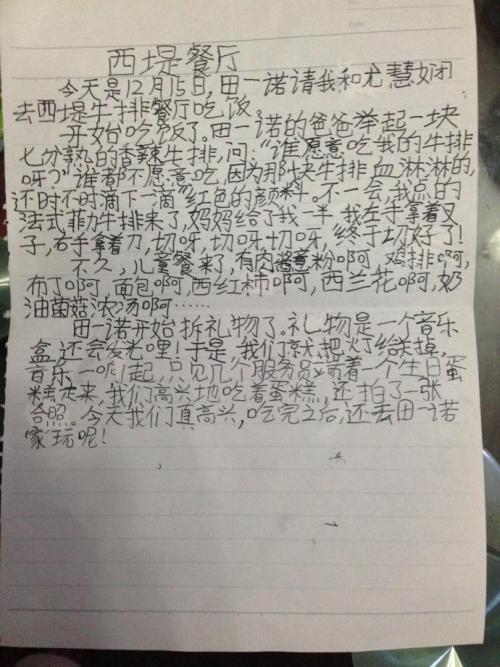 西堤餐厅
今天是12月15日,田一诺请我和尤慧娴
去西堤牛排餐厅吃饭。
开始吃饭了。田一诺的爸爸举起一块
七分熟的香辣牛排,问:“谁愿意吃我的牛排
呀?”谁都不愿意吃,因为那块牛排血淋淋的,
还时不时滴下一滴“红色的颜料。不一会,我点的
法式菲力牛排来了,妈妈给了我一半,我左手拿着叉
子,右手拿着刀,切呀,切呀切呀,终于切好了!
不久,儿童餐来了,有肉酱意粉啊,鸡排啊,
布丁啊,面包啊,西红柿啊,西兰花啊,奶
油菌菇浓汤啊……
田一诺开始拆礼物了。礼物是一个音乐
盒,还会发光哩!于是,我们就把灯给关掉,
音乐一响起,只见几个服务员端着一个生日蛋
糕走来,我们高兴地吃着蛋糕,还拍了一张
合照。今天我们真高兴,吃完之后,还去田一诺
家玩呢!